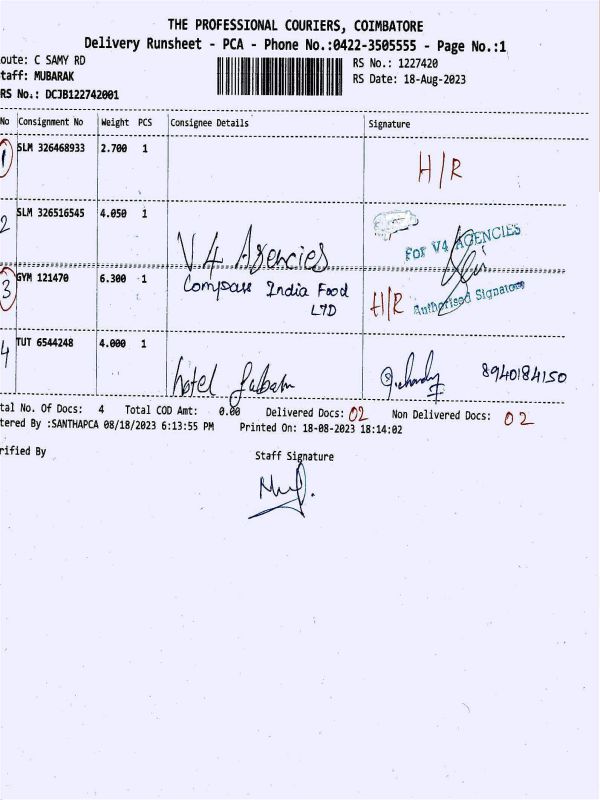 THE PROFESSIONAL COURIERS, COIMBATORE
Delivery Runsheet - PCA - Phone No.:0422-3505555 - Page No.:1
oute: C SAMY RD
taff: MUBARAK
RS No.: DCJB122742001
RS No.: 1227420
RS Date: 18-Aug-2023
No Consignment No Weight PCS Consignee Details Signature
1 SLM 326468933 2.700 1 H/R
2 SLM 326516545 4.050 1
V4 Agencies
For V4 AGENCIES
Authorised Signatory
3 GYM 121470 6.300 1 Compass India Food LTD H/R
4 TUT 6544248 4.000 1
hotel 8940184150
tal No. Of Docs: 4 Total COD Amt: 0.00 Delivered Docs: 02 Non Delivered Docs: 02
tered By :SANTHAPCA 08/18/2023 6:13:55 PM Printed On: 18-08-2023 18:14:02
rified By
Staff Signature